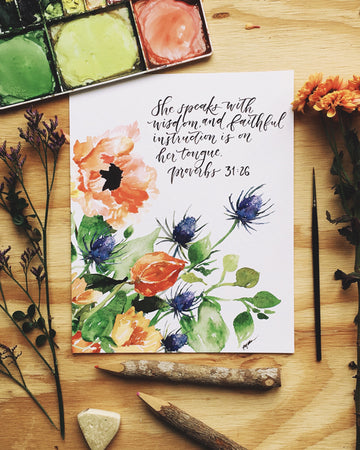 She speaks with
wisdom, and faithful
instruction is on
her tongue.
Proverbs 31:26